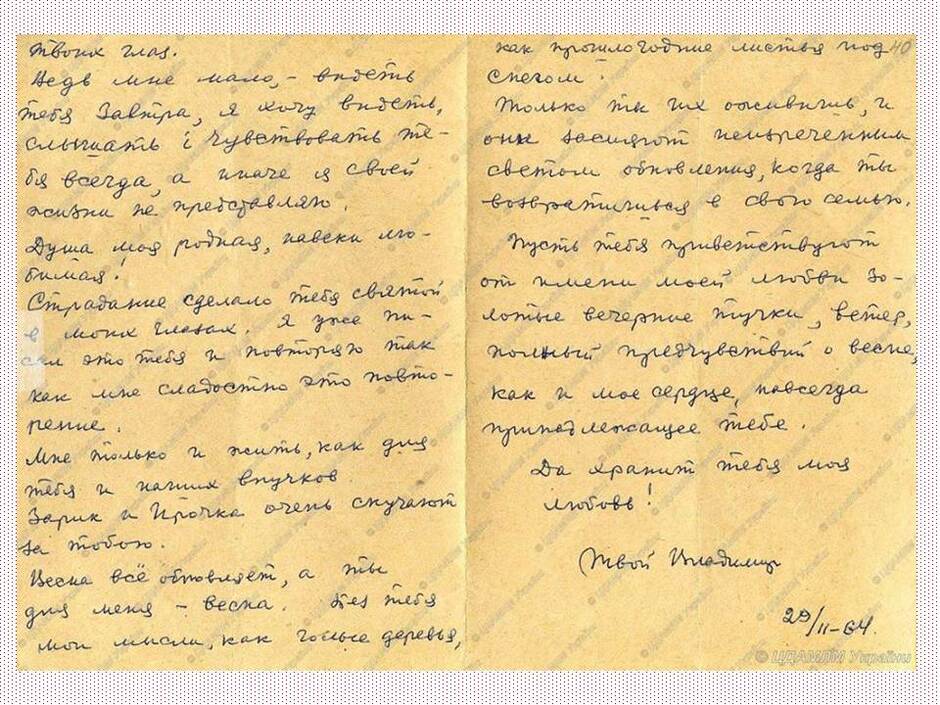 твоих глаз.
Ведь мне мало, – видеть
тебя завтра, я хочу видеть,
слышать і чувствовать те-
бя всегда, а иначе я своей
жизни не представляю.
Душа моя родная, навеки лю-
бимая!
Страдание сделало тебя святой
в моих глазах. Я уже пи-
сал это тебя и повторяю так
как мне сладостно это повто-
рение.
Мне только и жить, как для
тебя и наших внучков.
Зарик и Ирочка очень скучают
за тобою.
Весна всё обновляет, а ты
для меня – весна. Без тебя
мои мысли, как голые деревья,
как прошлогодние листья под
снегом!
Только ты их оживишь, и
они засияют неизреченным
светом обновления, когда ты
возвратишься в свою семью.
Пусть тебя приветствуют
от имени моей любви зо-
лотые вечерние тучки, ветер,
полный предчувствий о весне,
как и мое сердце, навсегда
принадлежащее тебе.
Да хранит тебя моя
любовь!
Твой Владимир
29/II–64.
40
© ЦДАМЛМ України